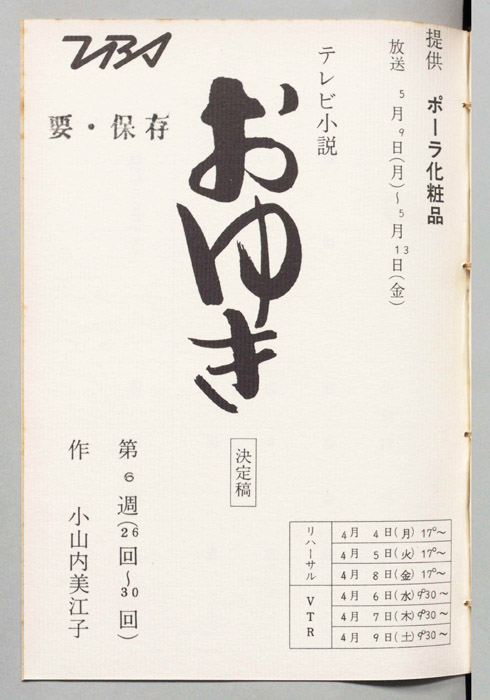 提供 ポーラ化粧品
放送 5月9日(月)〜5月13日(金)
テレビ小説
おゆき
決定稿
TBS
要・保存
第6週(26回〜30回)
作 小山内美江子
リハーサル
4月 4日(月) 17°〜
4月 5日(火) 17°〜
4月 8日(金) 17°〜
VTR
4月 6日(水) 9°30〜
4月 7日(木) 9°30〜
4月 9日(土) 9°30〜